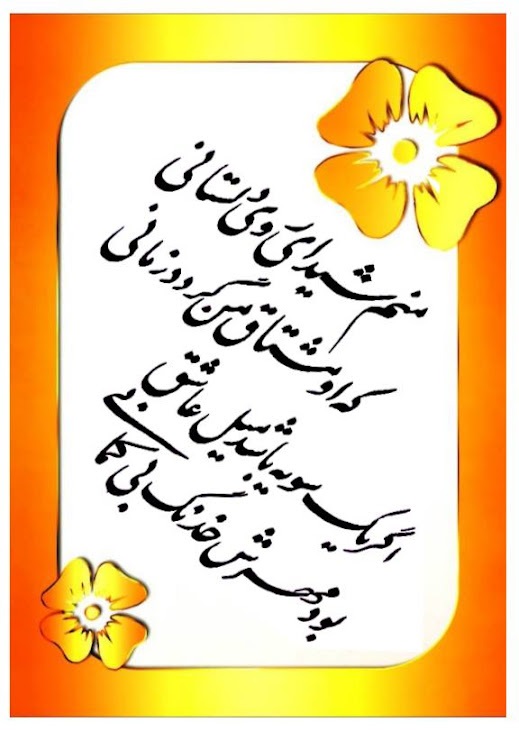 منم شیدای روی دلستانی
که او مشتاق من گردد زمانی
اگر یک سویه باشد میل عاشق
بود مهرش خدنگ بی کمانی